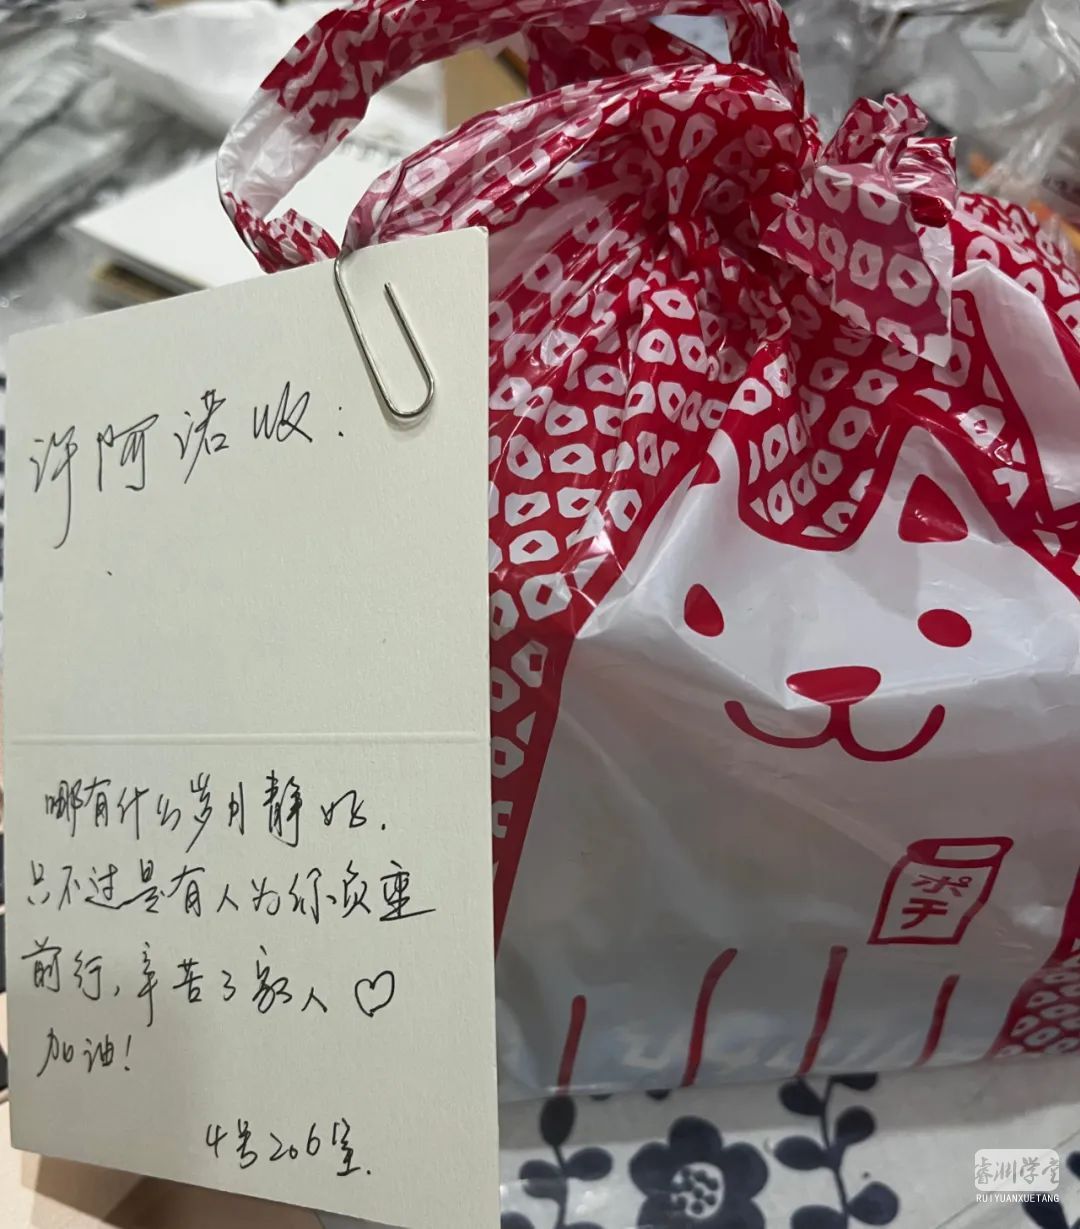 许阿诺收：
哪有什么岁月静好.
只不过是有人为你负重
前行，辛苦了家人♡
加油！
4号206室.
ポチ
睿渊学堂
RUIYUANXUETANG